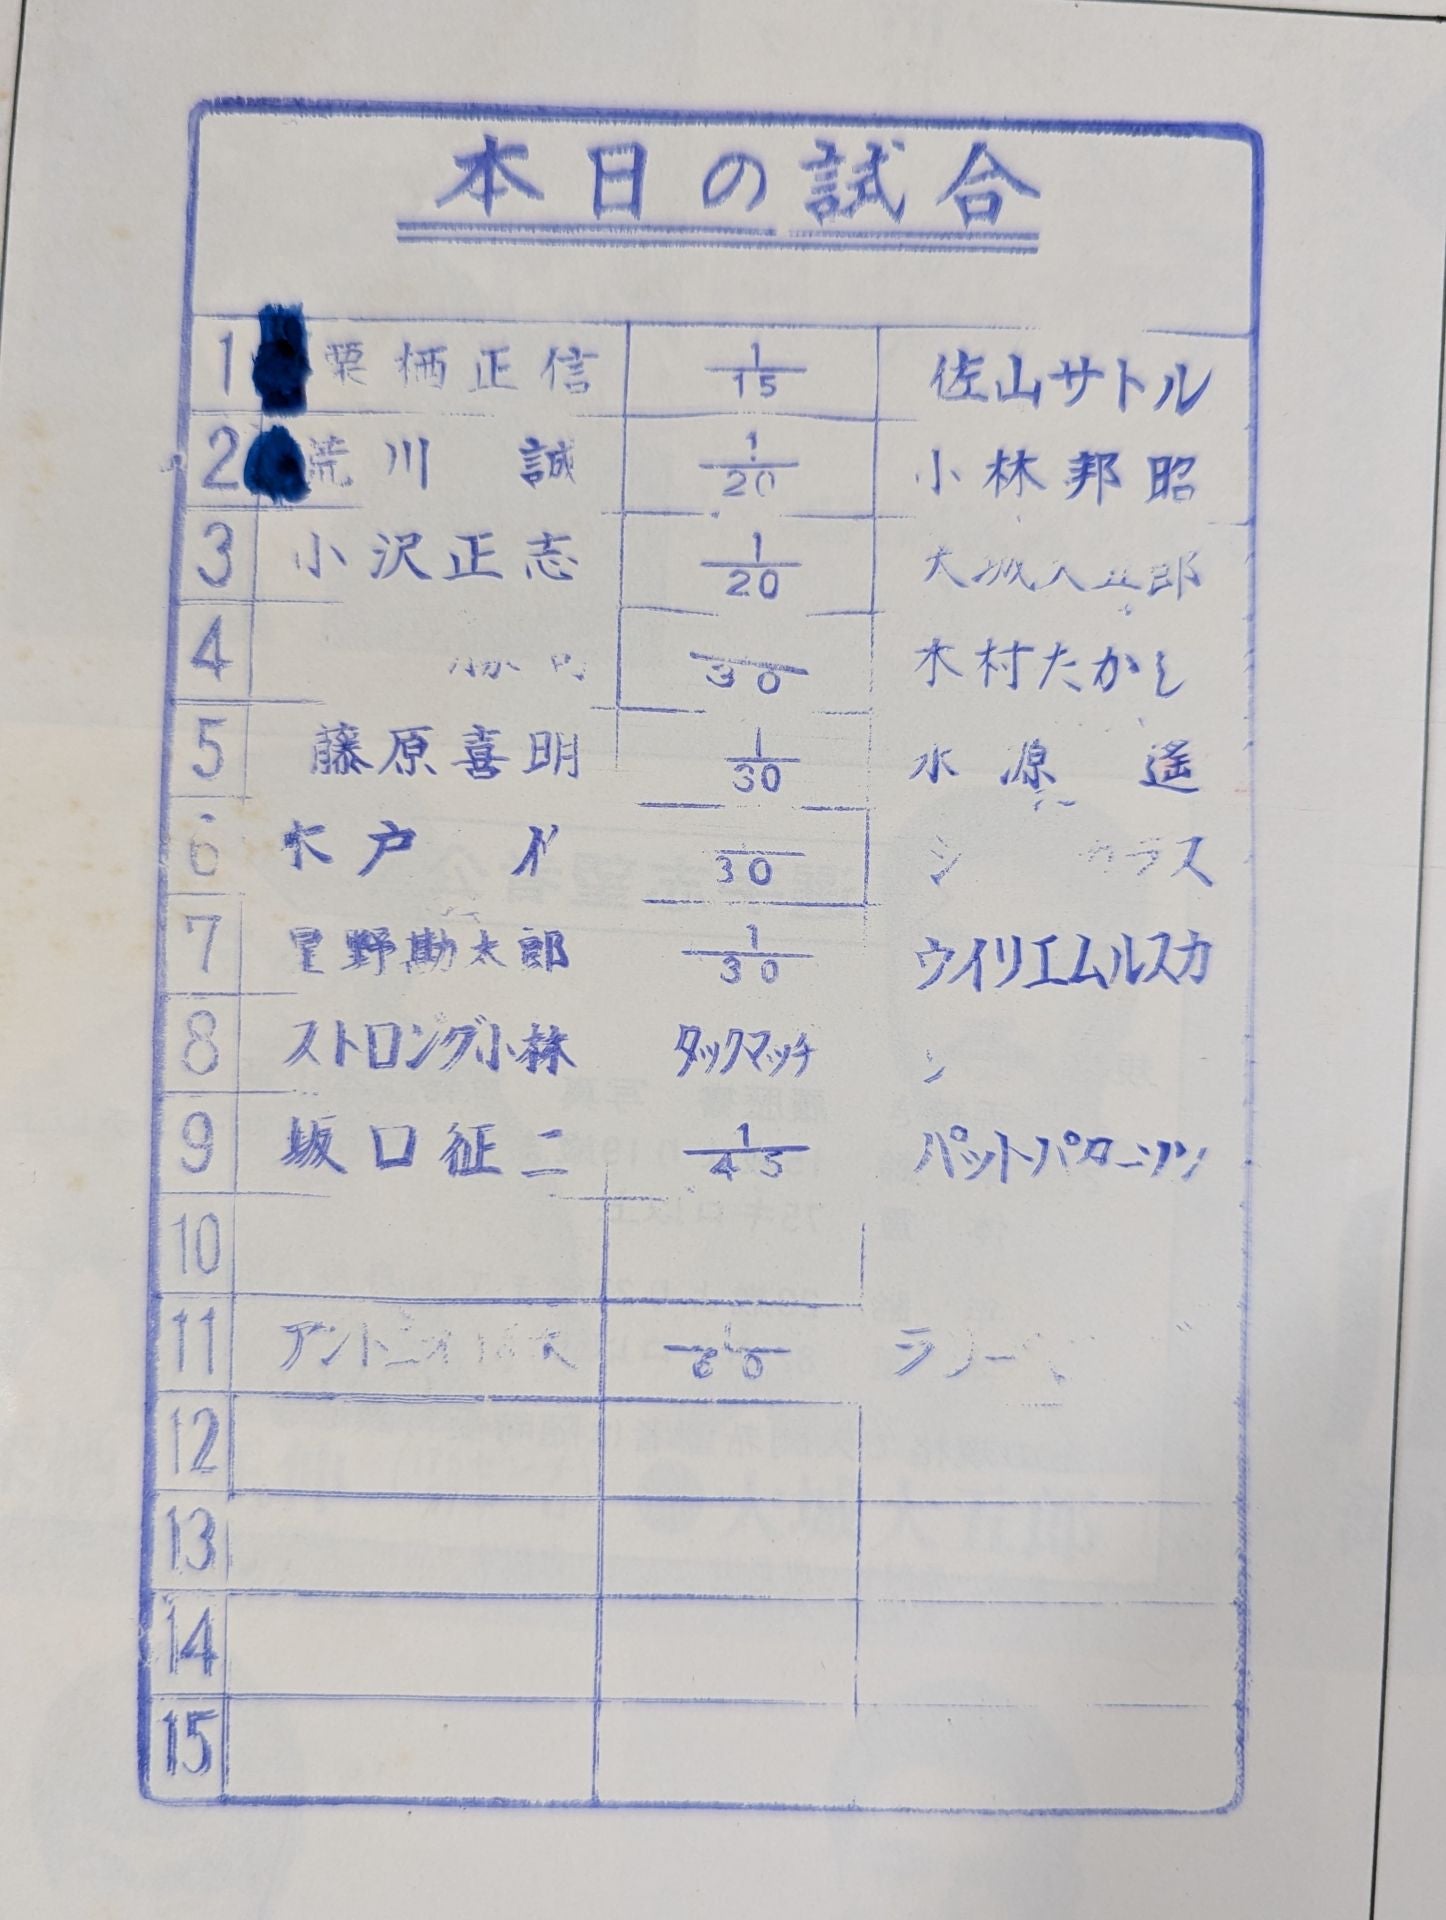 本日の試合
1 栗栖正信 1/15 佐山サトル
2 荒川 誠 1/20 小林邦昭
3 小沢正志 1/20 大城大五郎
4 30 木村たかし
5 藤原喜明 1/30 永源 遙
6 木戸 30
7 星野勘太郎 1/30 ウイリエムルスカ
8 ストロング小林 タックマッチ
9 坂口征二 1/45 パットパターソン
10
11 アントニオ 1/60 ラリー
12
13
14
15